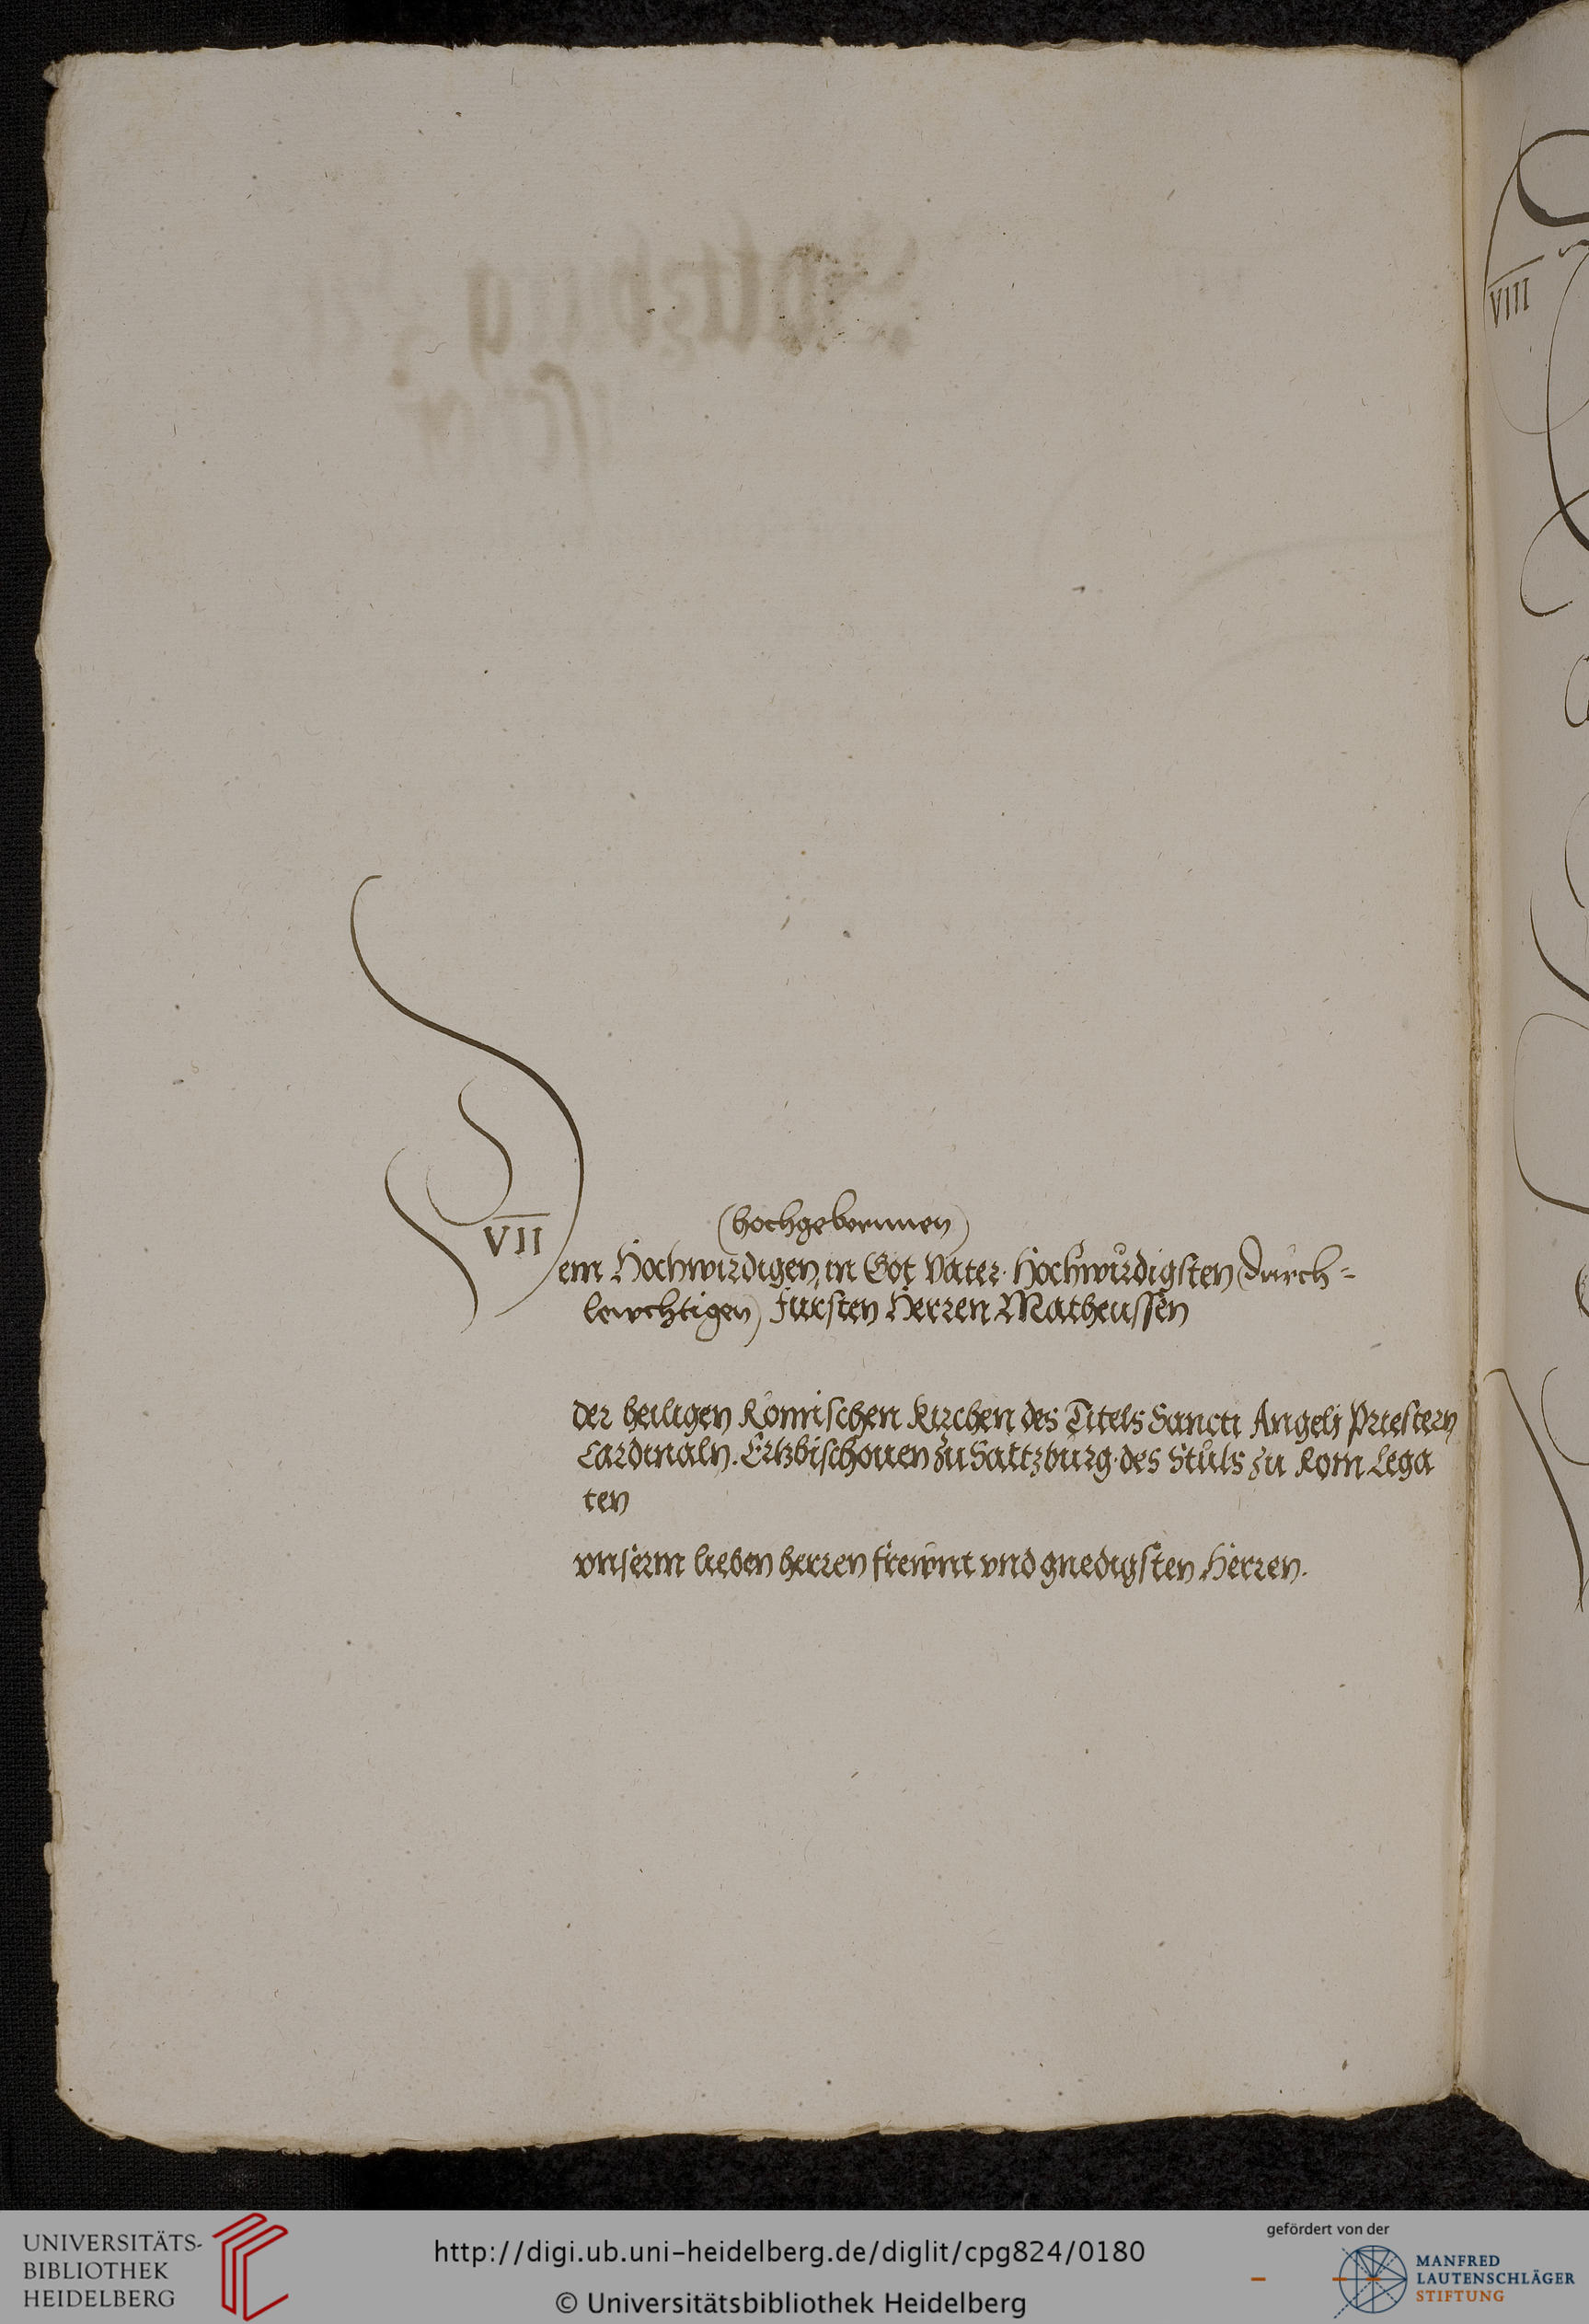 (hochgebornnen)
VII
Dem Hochwirdigen in Got Vater. Hochwůrdigsten (durch-
lewchtigen) Fürsten Herren Matheussen
der heiligen Römischen Kirchen des Titels Sancti Angeli Priestern
Cardinaln. Ertzbischouen zu Saltzburg. des Stůls zu Rom Lega
ten
vnserm lieben herren frewnt vnd gnedigsten Herren.
VIII
UNIVERSITÄTS-
BIBLIOTHEK
HEIDELBERG
http://digi.ub.uni-heidelberg.de/diglit/cpg824/0180
© Universitätsbibliothek Heidelberg
gefördert von der
MANFRED
LAUTENSCHLÄGER
STIFTUNG